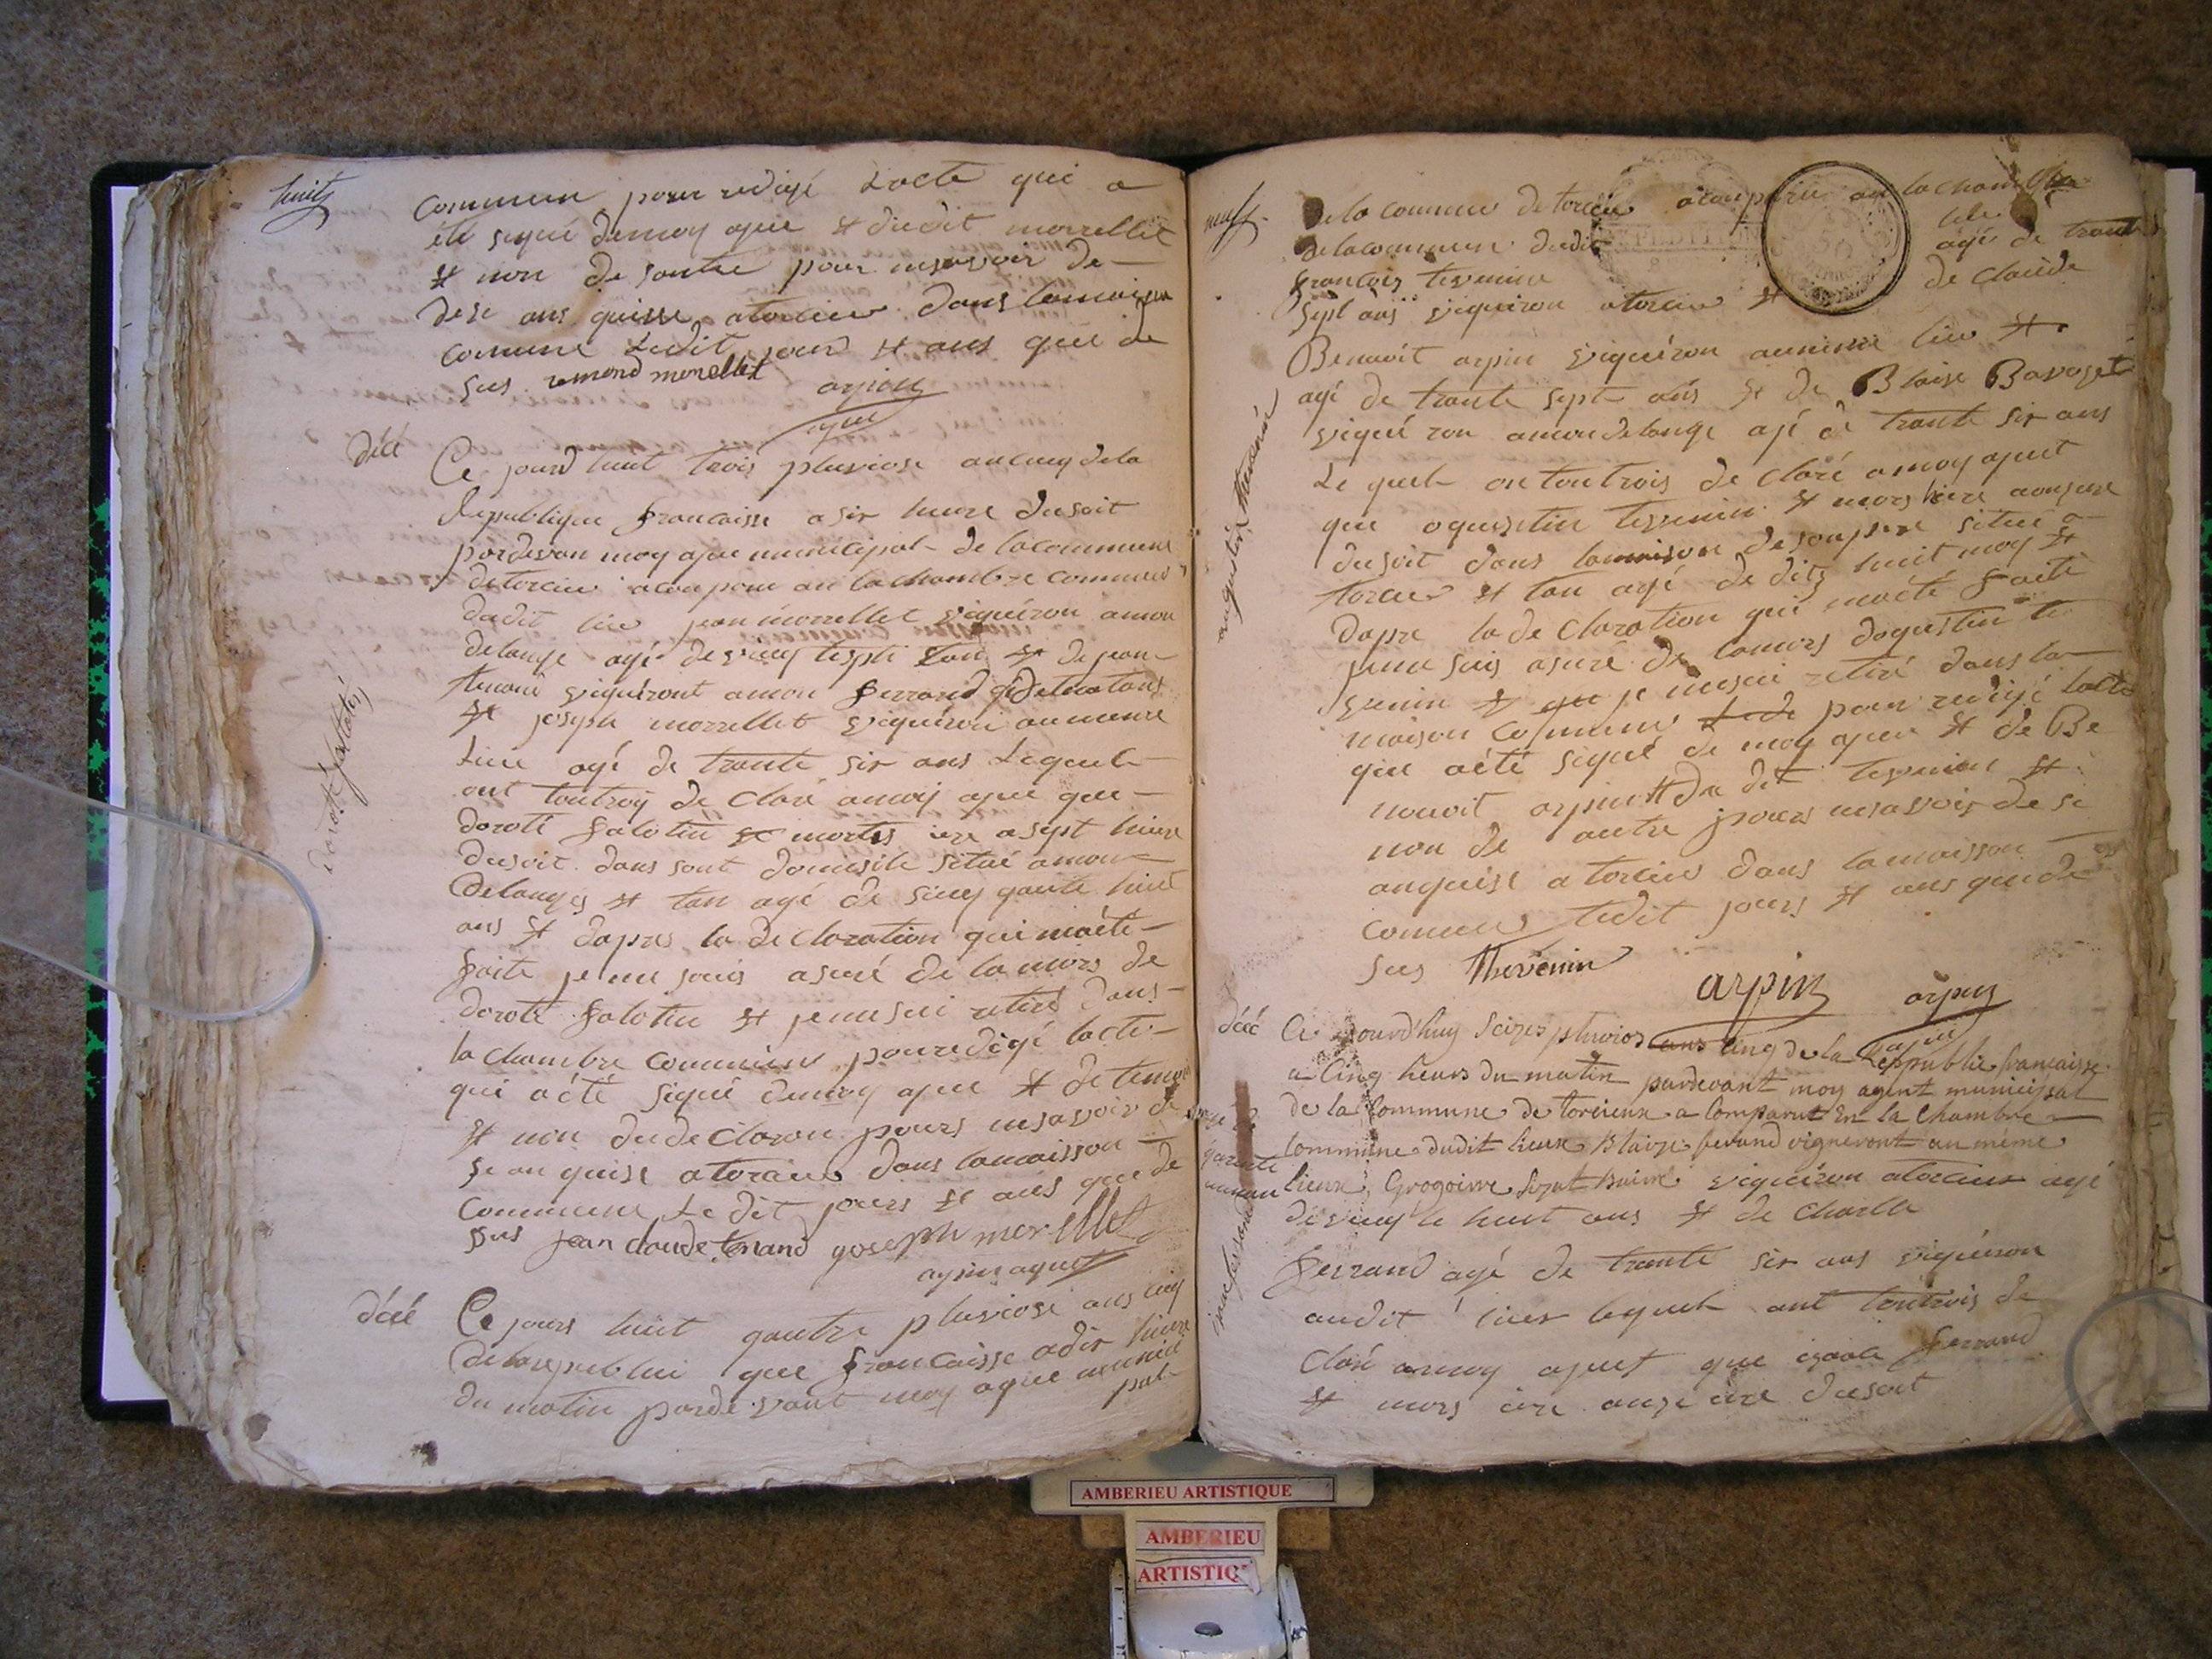 huits
commun pour redigé Lacte qui a
été signé demoy ajen & dudit morrellet
& non de lautre pour nesavoir de
dese ans quisse atorcieu dans lamaison
comune Ledit jour & ans que de
sus remond morellet arpin
ajen
décé
Ce jourd huit trois pluviose ancinq dela
Republique francaisse a six heure dusoit
pardevan moy ajen municipal de lacommune
detorcieu acon parue an lachambre commune
dudit lieu jean morrellet vigniron amon
delange agé devinq tespti &
& joseph morrellet vigniron aumeme
Lieu agé de trante six ans Lequel
ont toutroy de claré amoy ajen que
doroté falotin & mortes iere asept hiure
dusoit dans sont domisile situé amon
delanges & tan agé de sinq gante huit
ans & dapres la de claration qui maété
faite je me suis asuré de lamors de
doroté falotin & jemesui retiré dans
la chambre commune pouredigé lacte
qui aété signé demoy ajen & de
& non dudeclaran pours nesavoir de
se an quise atorcieu dans lamaisson
commune Le dit jours & ans que de
sus jean claude tenand yoseph morellet
arpin agent
doroté fallotin
décé
Ce jours huit quatre pluviose ans cinq
delarepubli que francaisse adix hiure
du matin parde vant moy ajen munici
pal
neuf
de la commune de torcieu aconparue an lachambre
delacommun dudit lile
francois tevenin agé de trante
sept ans vigniron atorcieu & de claude
Benoit arpin vigniron aumeme lieu &
agé de trante sept ans & de Blaise Bavozet
vigni ron amondelange ajé de trante six ans
Le quel on toutrois de claré amoy ajent
que ogustin tevenin & mors hiere aonzeure
dusoit dans lamaison desonpere situé a
torcieu & tan agé de dits huit moy &
dapre la de claration qui maété faite
jeme suis asuré de lamors dogustin te
venin & je mesui retiré dans la
maison commune pour redigé lacte
que aété signé de moy ajen & de Be
nouoit arpin & du dit tevenin &
non de autre pours nesavoir de se
anquise atorcieu dans lamaisson
comune ledit jours & ans que de
sus Thevenin arpin arpin
ajen
augustin thevenin
décé
Ce jourd'huy seizes pluvios ans cinq de la Reppublic francaisse
a Cinq heurs du matin pardevant moy agent municipal
de la Commune de torcieux a Comparut En la Chambre
Commune dudit lieux Blaize ferrand vigneront au même
lieux, Gregoire vigniron atorcieu agé
devinq te huit ans & de Charlle
ferrand agé de trante six ans vigniron
audit lieu lequel ont toutrois de
claré amoy ajent que isaac ferrand
& mors iere onze iere dusoit
isaac ferrand
AMBERIEU ARTISTIQUE
AMBERIEU
ARTISTIQ